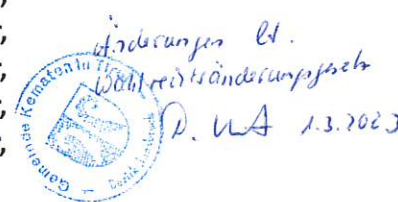 ;
;
;
;
;
Änderungen lt.
Wahlrechtsänderungsgesetz
1.3.2023
Gemeinde Kematen in Tirol